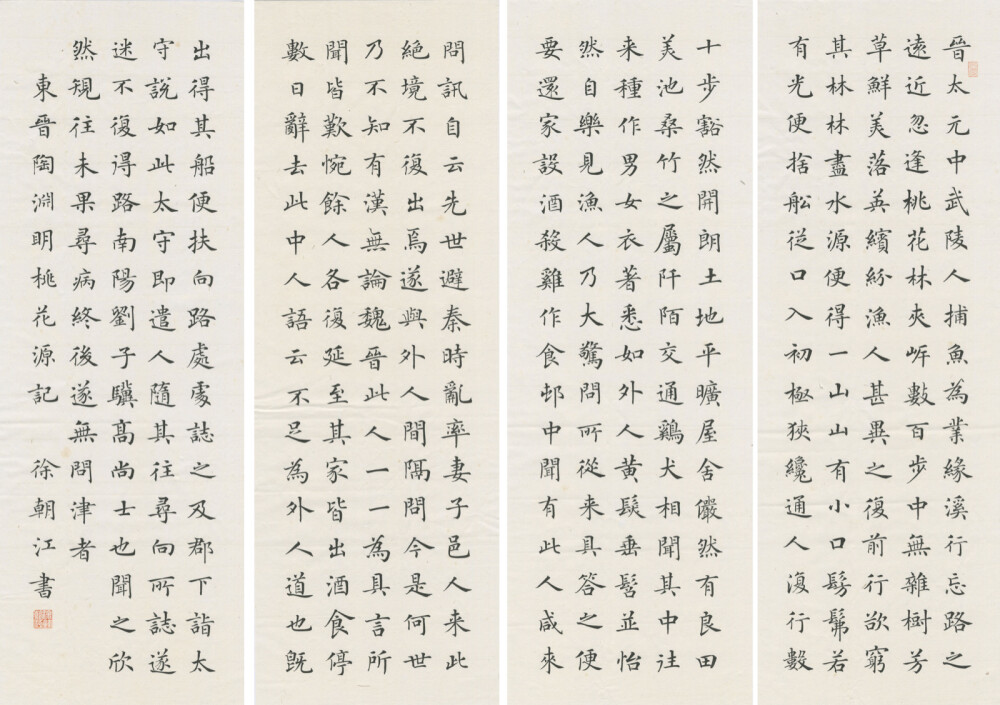 晉太元中武陵人捕魚為業緣溪行忘路之
遠近忽逢桃花林夾岸數百步中無雜樹芳
草鮮美落英繽紛漁人甚異之復前行欲窮
其林林盡水源便得一山山有小口髣髴若
有光便捨船從口入初極狹纔通人復行數
十步豁然開朗土地平曠屋舍儼然有良田
美池桑竹之屬阡陌交通鷄犬相聞其中往
来種作男女衣著悉如外人黄髮垂髫並怡
然自樂見漁人乃大驚問所從来具答之便
要還家設酒殺雞作食邨中聞有此人咸來
問訊自云先世避秦時亂率妻子邑人来此
絕境不復出焉遂與外人間隔問今是何世
乃不知有漢無論魏晉此人一一為具言所
聞皆歎惋餘人各復延至其家皆出酒食停
數日辭去此中人語云不足為外人道也既
出得其船便扶向路處處誌之及郡下詣太
守說如此太守即遣人隨其往尋向所誌遂
迷不復得路南陽劉子驥高尚士也聞之欣
然規往未果尋病終後遂無問津者
東晉陶淵明桃花源記 徐朝江書